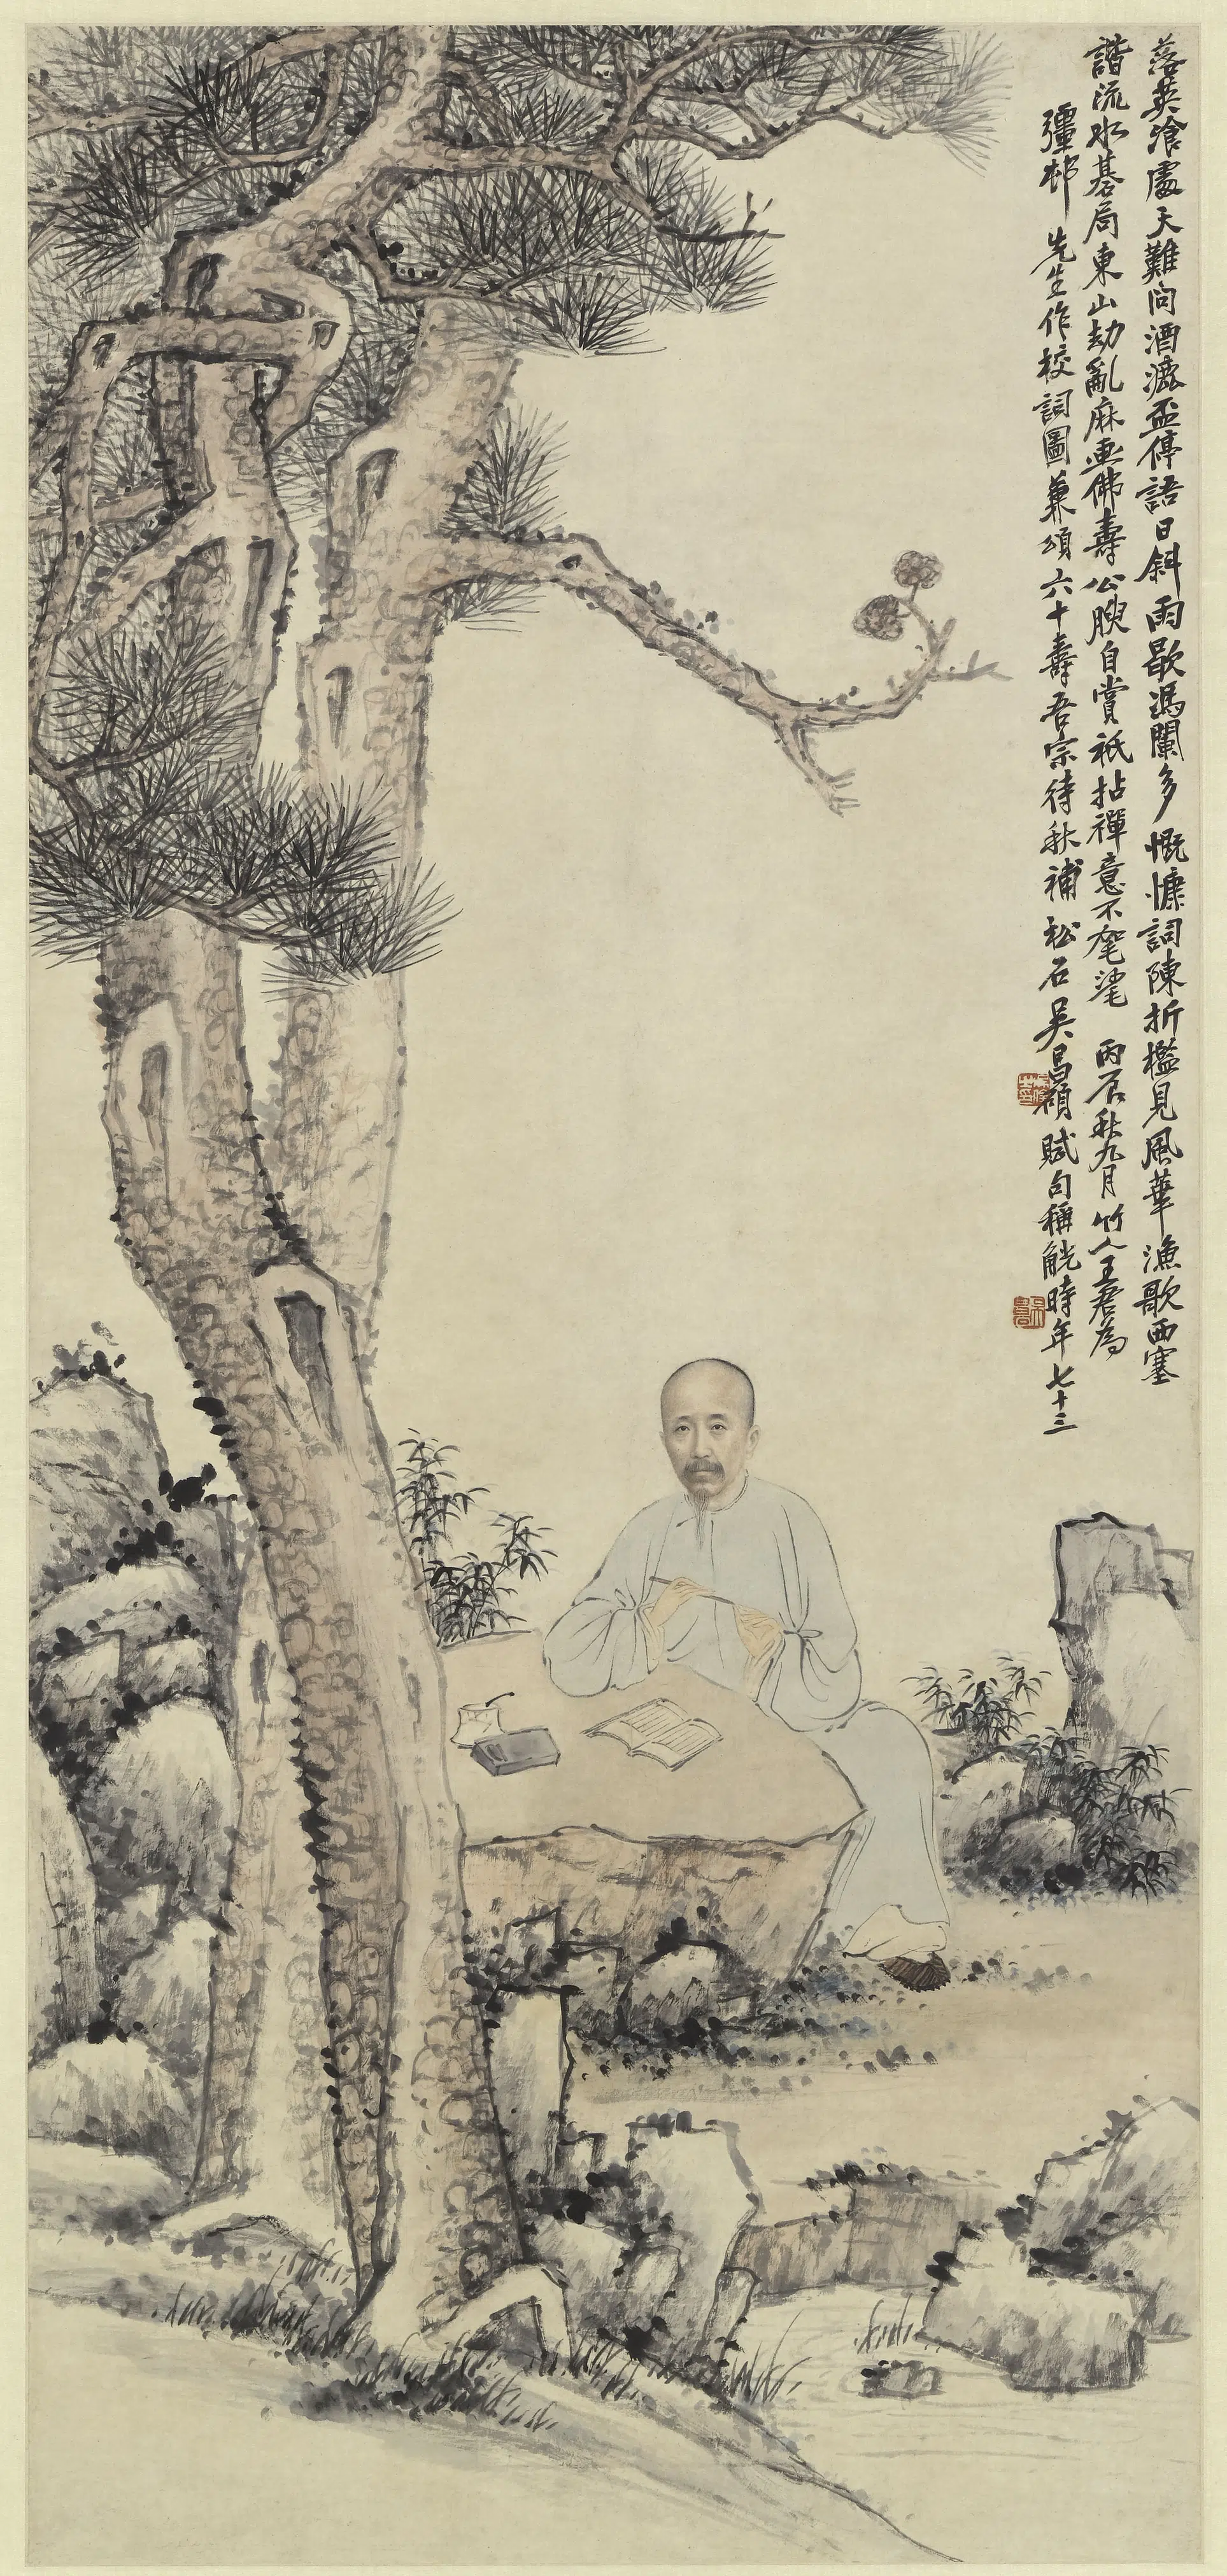 落英飡處天難問酒瀝盃停語日斜雨歇馮闌多慨慷詞陳折檻見風華漁歌西塞
諧流水棊局東山劫亂麻畫佛壽公腴自賞祇拈禪意不毾毿 丙辰秋九月竹人王君為
彊邨先生作校詞圖兼頌六十壽吾宗待秋補松石吳昌碩賦句稱觥時年七十三